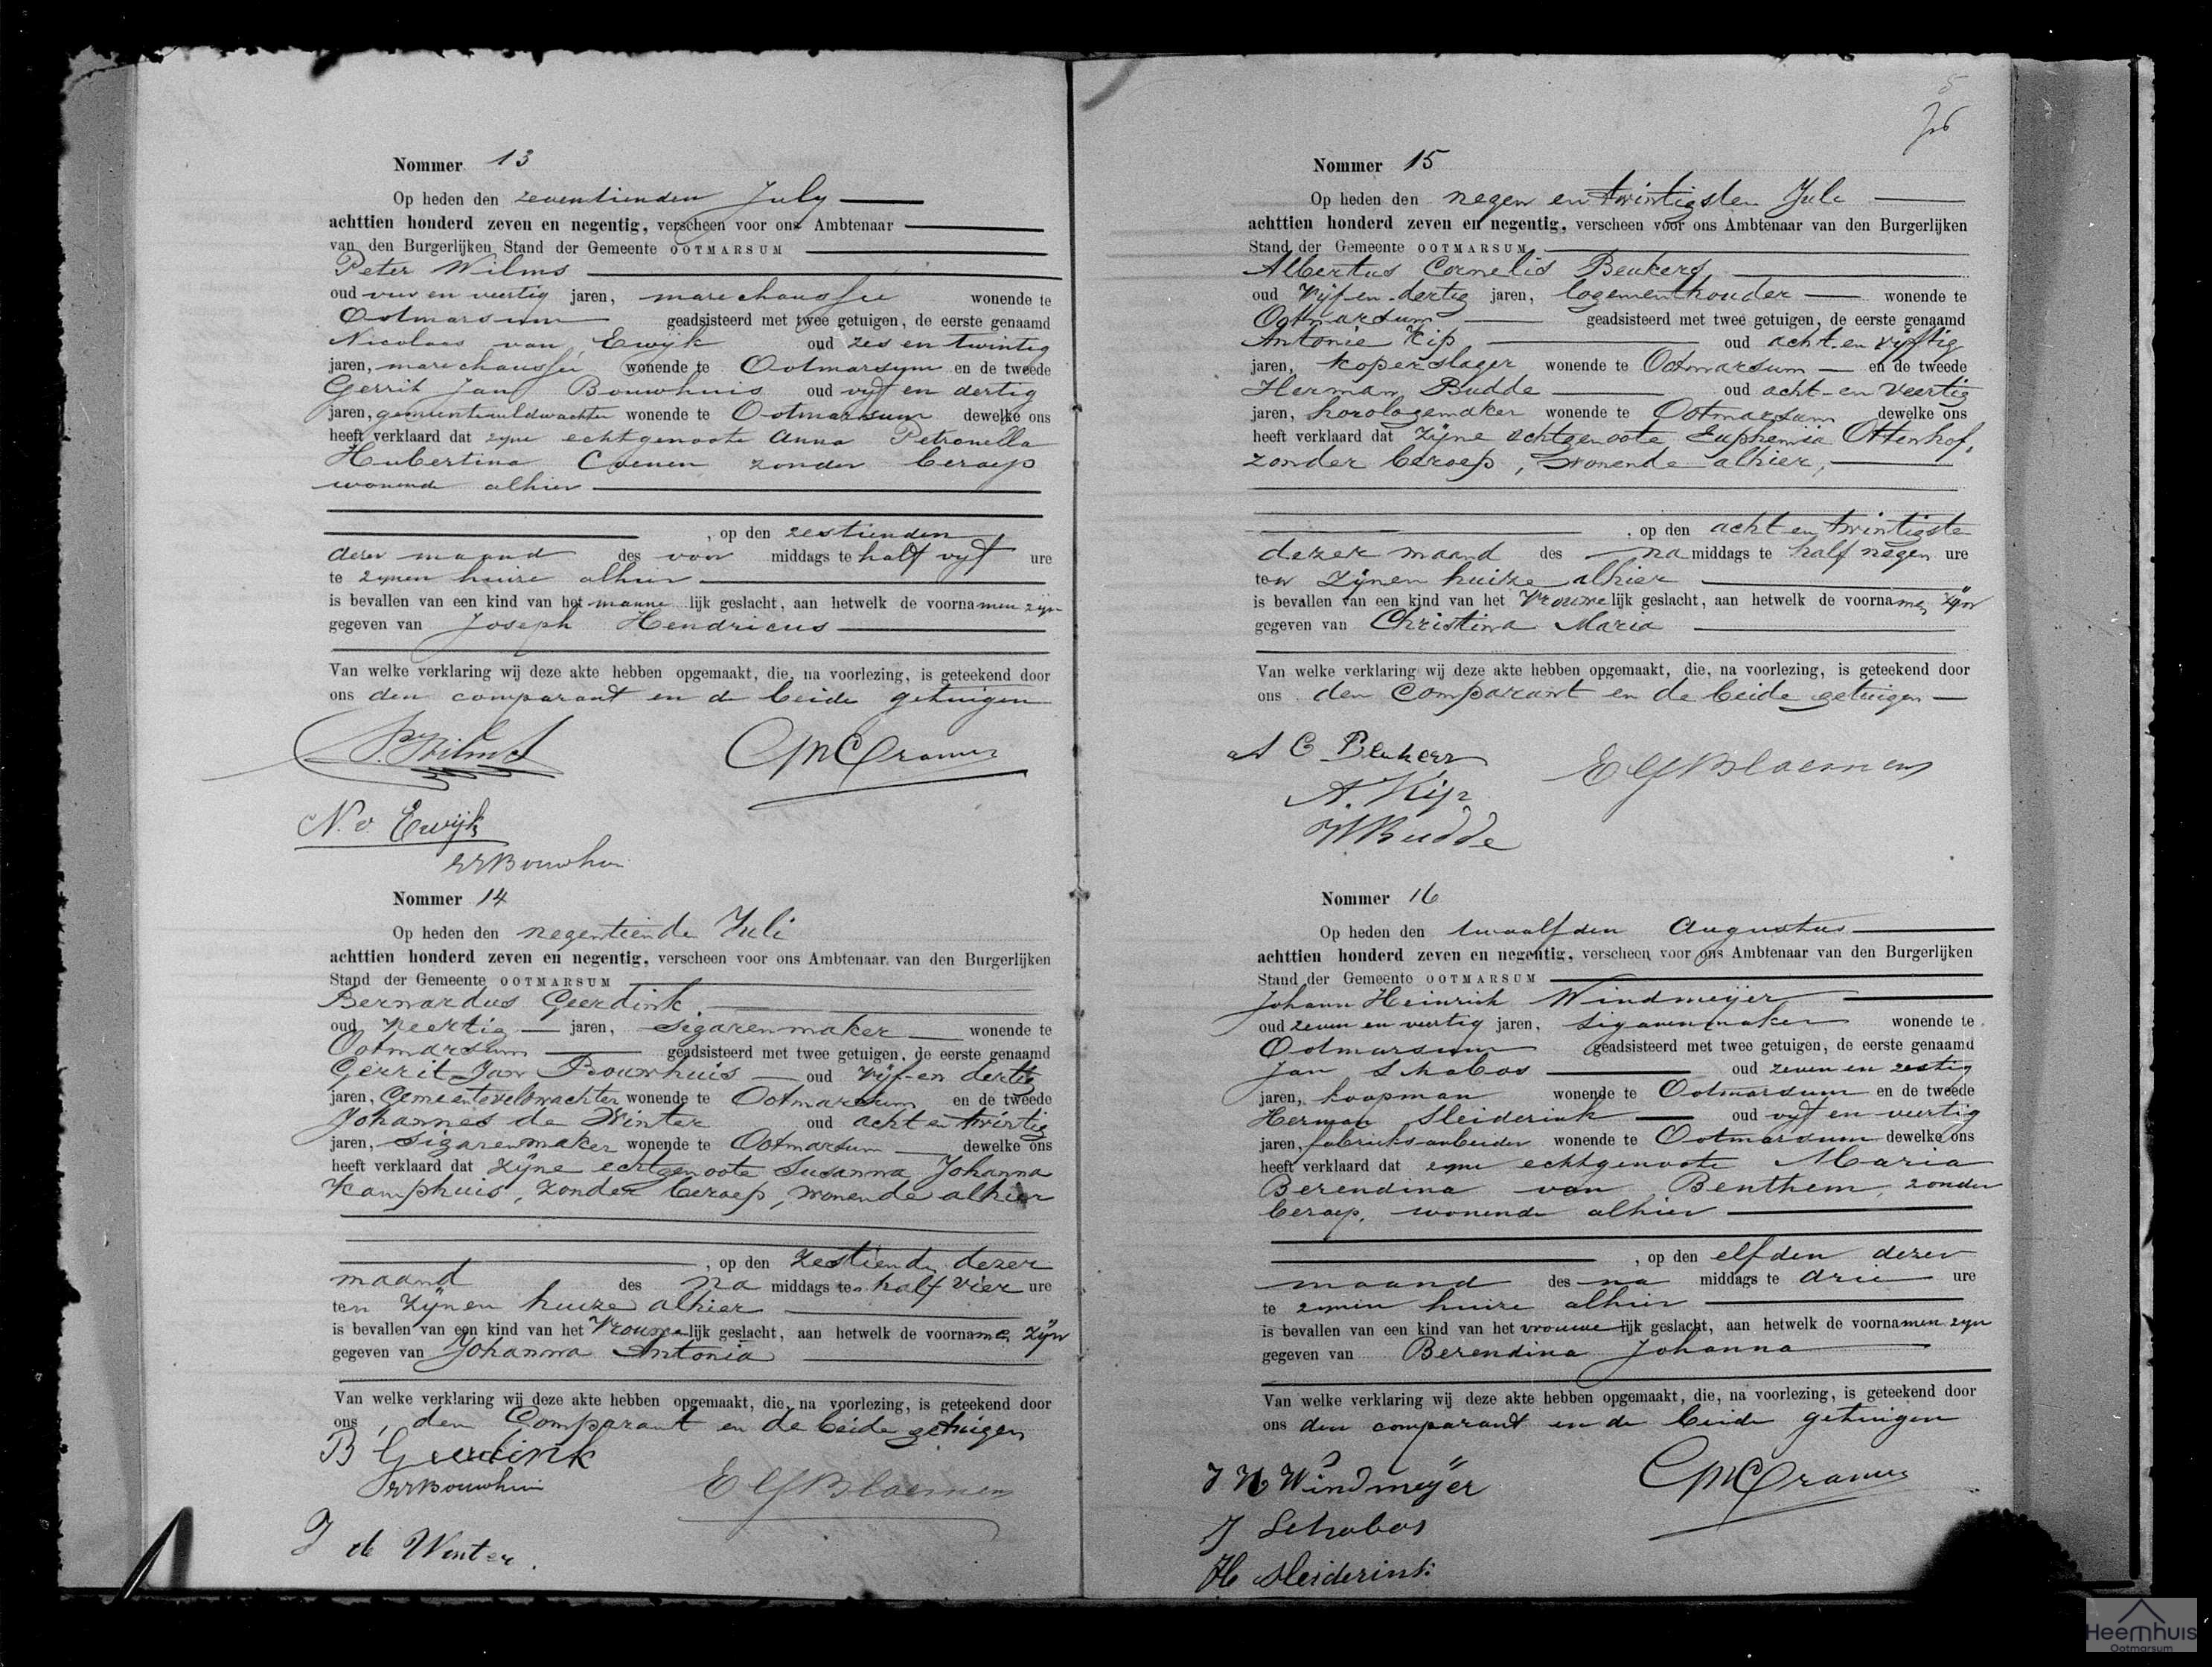 Nommer 13
Op heden den zeventienden July
achttien honderd zeven en negentig, verscheen voor ons Ambtenaar
van den Burgerlijken Stand der Gemeente OOTMARSUM
Peter Wilms
oud vier en veertig jaren, marechaussee wonende te
Ootmarsum geadsisteerd met twee getuigen, de eerste genaamd
Nicolaas van Ewijk oud zes en twintig
jaren, marechaussee wonende te Ootmarsum en de tweede
Gerrit Jan Bouwhuis oud vijf en dertig
jaren, gemeenteveldwachter wonende te Ootmarsum dewelke ons
heeft verklaard dat zijne echtgenoote Anna Petronella
Hubertina Coenen zonder beroep
wonende alhier
, op den zestienden
dezer maand des voor middags te half vijf ure
te zijnen huize alhier
is bevallen van een kind van het manne lijk geslacht, aan hetwelk de voornamen zijn
gegeven van Joseph Hendricus
Van welke verklaring wij deze akte hebben opgemaakt, die, na voorlezing, is geteekend door
ons den comparant en de beide getuigen
P. Wilms
N. v Ewijk
Nommer 14
Op heden den negentiende Juli
achttien honderd zeven en negentig, verscheen voor ons Ambtenaar van den Burgerlijken
Stand der Gemeente OOTMARSUM
Bernardus Geerdink
oud Veertig jaren, sigarenmaker wonende te
Ootmarsum geadsisteerd met twee getuigen, de eerste genaamd
Gerrit Jan Bouwhuis oud vijf-en dertig
jaren, Gemeenteveldwachter wonende te Ootmarsum en de tweede
Johannes de Winter oud acht en twintig
jaren, sigarenmaker wonende te Ootmarsum dewelke ons
heeft verklaard dat zijne echtgenoote Susanna Johanna
Kamphuis, zonder beroep, wonende alhier
, op den zestienden dezer
maand des na middags te half vier ure
ten zijnen huize alhier
is bevallen van een kind van het Vrouwe lijk geslacht, aan hetwelk de voornamen zijn
gegeven van Johanna Antonia
Van welke verklaring wij deze akte hebben opgemaakt, die, na voorlezing, is geteekend door
ons, den Comparant en de beide getuigen
B Geerdink
J de Winter.
Nommer 15
Op heden den negen en twintigsten Juli
achttien honderd zeven en negentig, verscheen voor ons Ambtenaar van den Burgerlijken
Stand der Gemeente OOTMARSUM
Albertus Cornelis Beukers
oud Vijf-en-dertig jaren, logementhouder wonende te
Ootmarsum geadsisteerd met twee getuigen, de eerste genaamd
Antonie Kip oud acht-en vijftig
jaren, koperslager wonende te Ootmarsum en de tweede
Herman Budde oud acht-en Veertig
jaren, horologemaker wonende te Ootmarsum dewelke ons
heeft verklaard dat zijne echtgenoote Euphemia Ottenhof,
zonder beroep, wonende alhier,
, op den acht en twintigste
dezer maand des na middags te half negen ure
ten zijnen huize alhier
is bevallen van een kind van het Vrouwe lijk geslacht, aan hetwelk de voornamen zijn
gegeven van Christina Maria
Van welke verklaring wij deze akte hebben opgemaakt, die, na voorlezing, is geteekend door
ons den Comparant en de beide getuigen
A C Beukers
A. Kip
HBudde
Nommer 16
Op heden den twaalfden Augustus
achttien honderd zeven en negentig, verscheen voor ons Ambtenaar van den Burgerlijken
Stand der Gemeente OOTMARSUM
Johann Heinrich Windmeijer
oud zeven en veertig jaren, sigarenmaker wonende te
Ootmarsum geadsisteerd met twee getuigen, de eerste genaamd
Jan Schabos oud zeven en zestig
jaren, koopman wonende te Ootmarsum en de tweede
Herman Sleiderink oud vijf en veertig
jaren, fabrieksarbeider wonende te Ootmarsum dewelke ons
heeft verklaard dat zijne echtgenoote Maria
Berendina van Benthem, zonder
beroep, wonende alhier
, op den elfden dezer
maand des na middags te drie ure
te zijnen huize alhier
is bevallen van een kind van het vrouwe lijk geslacht, aan hetwelk de voornamen zijn
gegeven van Berendina Johanna
Van welke verklaring wij deze akte hebben opgemaakt, die, na voorlezing, is geteekend door
ons den comparant en de beide getuigen
J H Windmeijer
J Schabos
H Sleiderink
Heemhuis
Ootmarsum